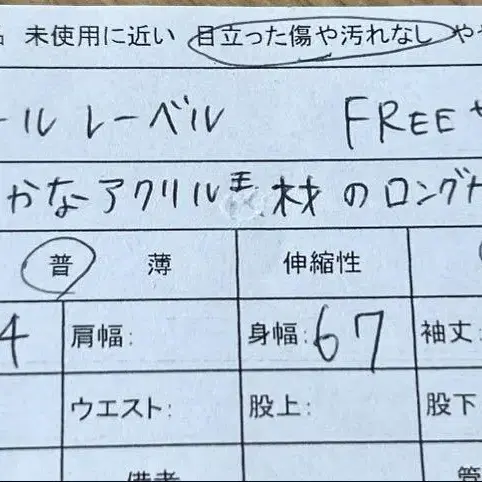 未使用に近い 目立った傷や汚れなし や
ール レーベル FREE
かなアクリル素材 のロング
普 薄 伸縮性
4 肩幅: 身幅:67 袖丈:
ウエスト: 股上: 股下
備考